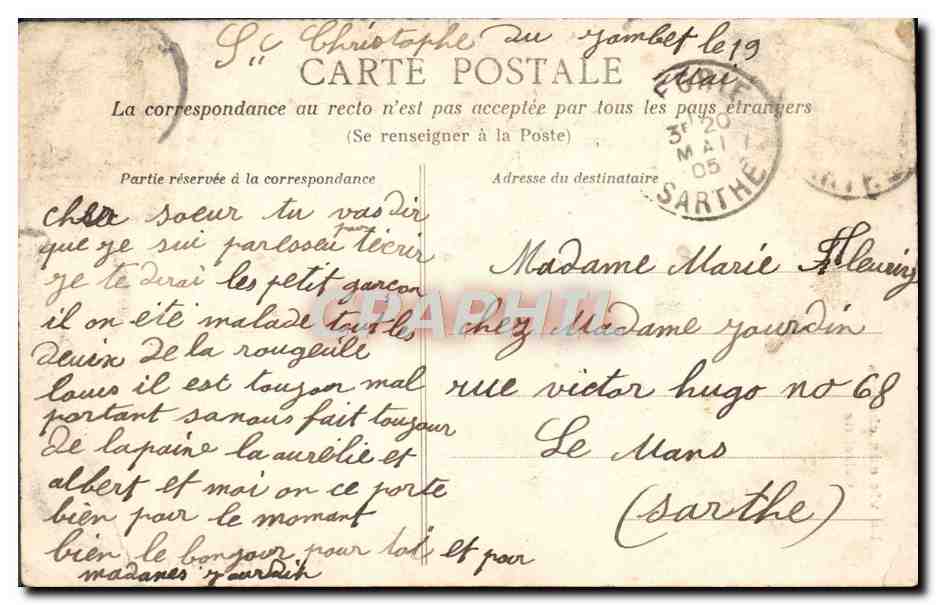 St Christophe du Jambet le 19
Mai
CARTE POSTALE
La correspondance au recto n'est pas acceptée par tous les pays étrangers
(Se renseigner à la Poste)
Partie réservée à la correspondance
Adresse du destinataire
3E 20
MAI
05
SARTHE
cher soeur tu vas dir
que je sui paresseu pour técrir
je te dirai les petit garçon
il on été malade tout les
deuix de la rougeule
louis il est toujour mal
portant sa nous fait toujour
de la paine la aurélie et
albert et moi on ce porte
bien pour le momant
bien le bonjour pour toi et pour
madames jourdin
Madame Marié Fleuriy
chez Madame jourdin
rue victor hugo no 68
Le Mans
(sarthe)
CPAPHIL